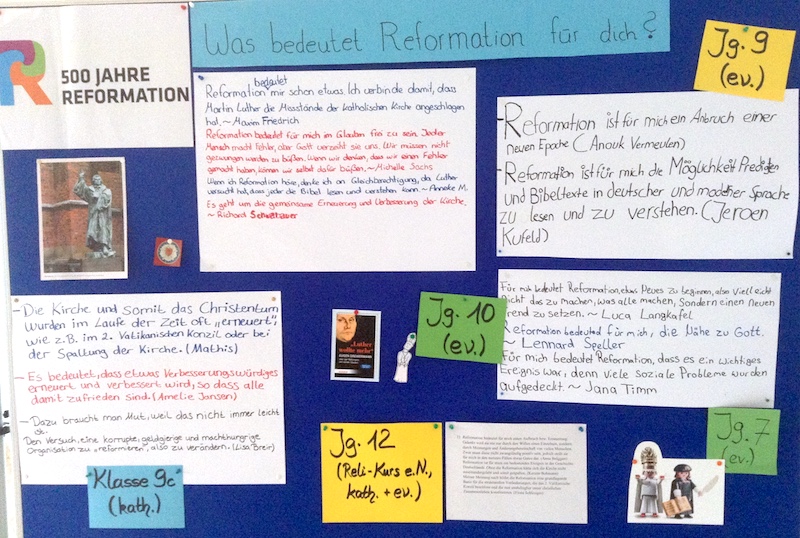 Was bedeutet Reformation für dich?
500 JAHRE
REFORMATION
bedeutet
Reformation mir schon etwas. Ich verbinde damit, dass
Martin Luther die Missstände der katholischen Kirche angeschlagen
hat. ~ Maxim Friedrich
Reformation bedeutet für mich im Glauben frei zu sein. Jeder
Mensch macht Fehler, aber Gott verzeiht sie uns. Wir müssen nicht
gezwungen werden zu büßen. Wenn wir denken, dass wir einen Fehler
gemacht haben, können wir selbst dafür büßen. ~ Michelle Sachs
Wenn ich Reformation höre, denke ich an Gleichberechtigung, da Luther
versucht hat, dass jeder die Bibel lesen und verstehen kann. ~ Anneke M.
Es geht um die gemeinsame Erneuerung und Verbesserung der Kirche.
~ Richard
Jg. 9
(ev.)
Reformation ist für mich ein Anbruch einer
neuen Epoche (Anouk Vermeulen)
- Reformation ist für mich die Möglichkeit Predigten
und Bibeltexte in deutscher und moderner Sprache
zu lesen und zu verstehen. (Jeroen
Kufeld)
- Die Kirche und somit das Christentum
wurden im Laufe der Zeit oft „erneuert",
wie z.B. im 2. Vatikanischen Konzil oder bei
der Spaltung der Kirche. (Mathis)
- Es bedeutet, dass etwas Verbesserungswürdiges
erneuert und verbessert wird, so dass alle
damit zufrieden sind. (Amelie Jansen)
- Dazu braucht man Mut, weil das nicht immer leicht
ist.
Den Versuch, eine korrupte, geldgierige und machthungrige
Organisation zu „reformieren", also zu verändern. (Lisa Breir)
Klasse 9c
(kath.)
„Luther
wollte mehr"
Jg. 10
(ev.)
Für mich bedeutet Reformation, etwas Neues zu beginnen, also vielleicht
nicht das zu machen, was alle machen, sondern einen neuen
Trend zu setzen. ~ Luca Langkafel
Reformation bedeuted für mich, die Nähe zu Gott.
~ Lennard Speller
Für mich bedeutet Reformation, dass es ein wichtiges
Ereignis war, denn viele soziale Probleme wurden
aufgedeckt. ~ Jana Timm
Jg. 7
(ev.)
Jg. 12
(Reli-Kurs e.N.,
kath. + ev.)